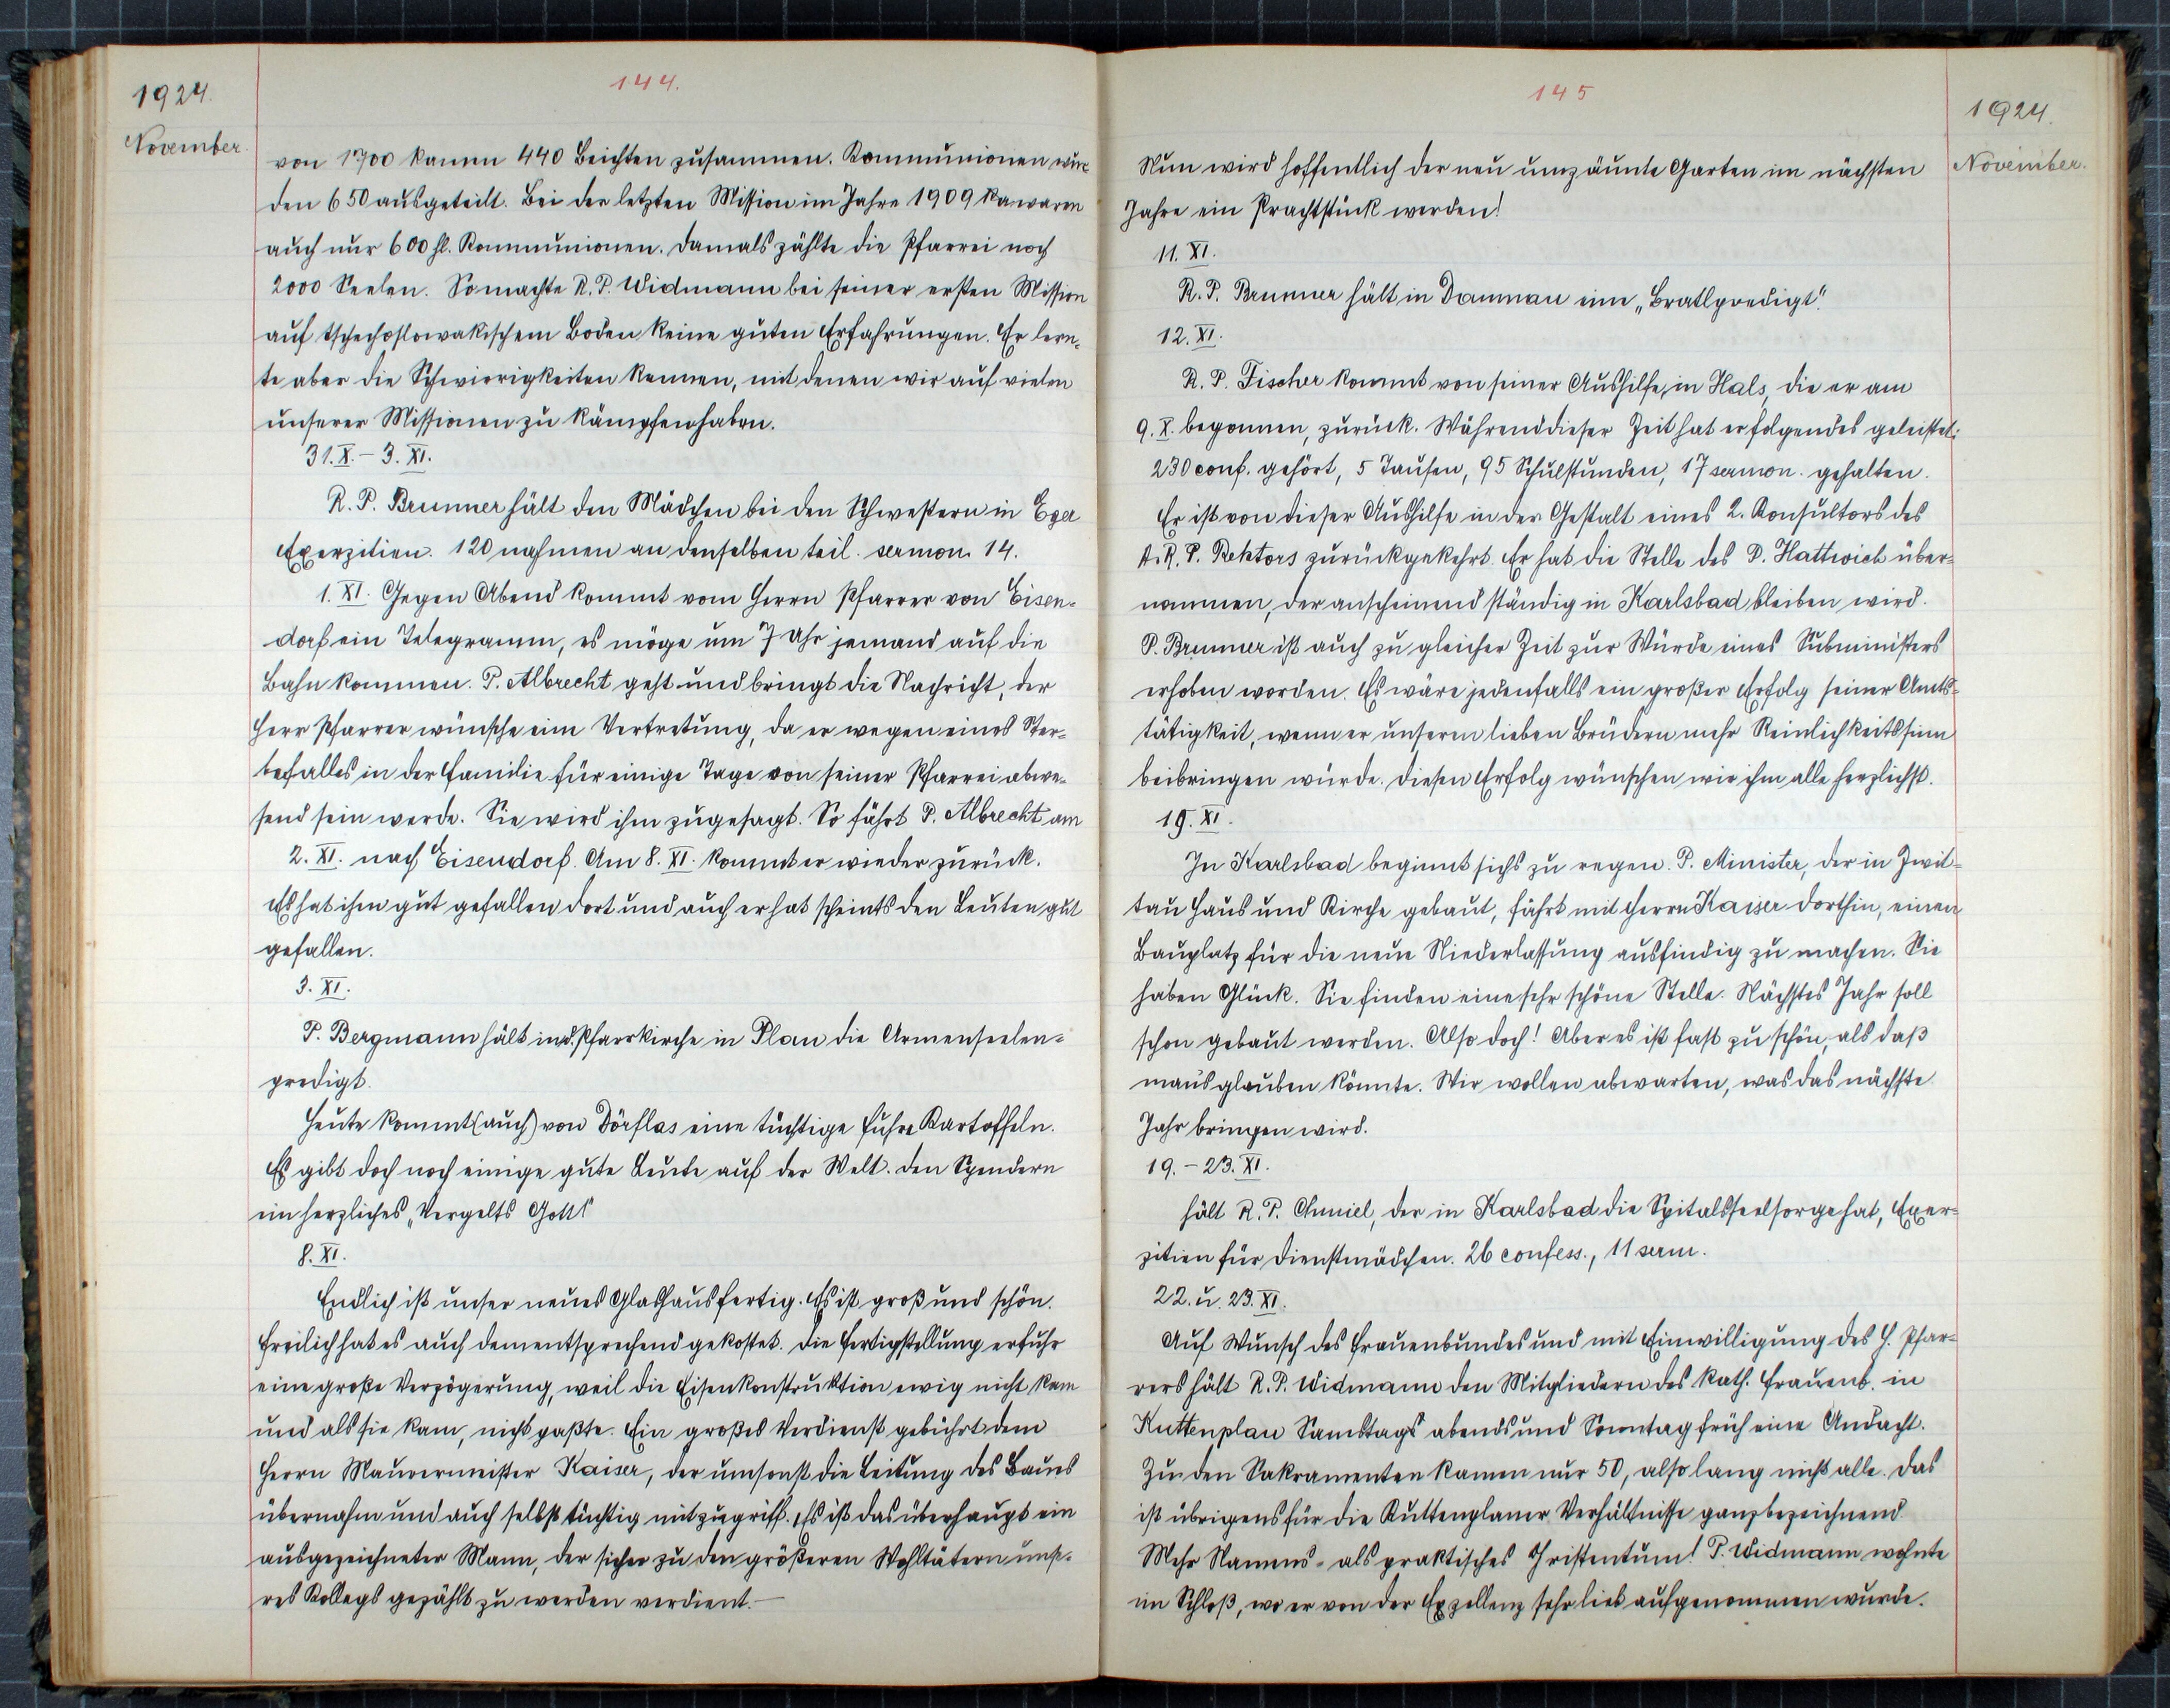 1924.
November.
144.
von 1700 kamen 440 Beichten zusammen. Kommunionen wur-
den 650 ausgeteilt. Bei der letzten Mission im Jahre 1909 waren
auch nur 600 hl. Kommunionen. Damals zählte die Pfarrei noch
2000 Seelen. So machte R. P. Widmann bei seiner ersten Mission
auf tschechoslowakischem Boden keine guten Erfahrungen. Er lern-
te aber die Schwierigkeiten kennen, mit denen wir auf vielen
unserer Missionen zu kämpfen haben.
31. X. – 3. XI.
R. P. Brunner hält den Mädchen bei den Schwestern in Eger
Exerzitien. 120 nahmen an denselben teil. sermon. 14.
1. XI. Gegen Abend kommt vom Herrn Pfarrer von Eisen-
dorf ein Telegramm, es möge um 7 Uhr jemand auf die
Bahn kommen. P. Albrecht geht und bringt die Nachricht, der
Herr Pfarrer wünsche eine Vertretung, da er wegen eines Ster-
befalles in der Familie für einige Tage von seiner Pfarrei abwe-
send sein werde. Sie wird ihm zugesagt. So fährt P. Albrecht am
2. XI. nach Eisendorf. Am 8. XI. kommt er wieder zurück.
Es hat ihm gut gefallen dort und auch er hat scheints den Leuten gut
gefallen.
3. XI.
P. Bergmann hält in d. Pfarrkirche in Plan die Armenseelen-
predigt.
Heute kommt (auch) von Dörflas eine tüchtige Fuhre Kartoffeln.
Es gibt doch noch einige gute Leute auf der Welt. Den Spendern
ein herzliches „Vergelts Gott!"
8. XI.
Endlich ist unser neues Glashaus fertig. Es ist groß und schön.
Freilich hat es auch dementsprechend gekostet. Die Fertigstellung erfuhr
eine große Verzögerung, weil die Eisenkonstruktion ewig nicht kam
und als sie kam, nicht paßte. Ein großes Verdienst gebührt dem
Herrn Maurermeister Kaiser, der umsonst die Leitung des Baues
übernahm und auch selbst tüchtig mitzugriff. Es ist das überhaupt ein
ausgezeichneter Mann, der sicher zu den größeren Wohltätern unse-
res Kollegs gezählt zu werden verdient. —
145
1924.
November.
Nun wird hoffentlich der neu umzäunte Garten im nächsten
Jahre ein Prachtstück werden!
11. XI.
R. P. Brunner hält in Damnau eine „Bratlpredigt".
12. XI.
R. P. Fischer kommt von seiner Aushilfe in Hals, die er am
9. X. begonnen, zurück. Während dieser Zeit hat er folgendes geleistet:
230 conf. gehört, 5 Taufen, 95 Schulstunden, 17 sermon. gehalten.
Er ist von dieser Aushilfe in der Gestalt eines 2. Konsultors des
A. R. P. Rektors zurückgekehrt. Er hat die Stelle des P. Hattwich über-
nommen, der anscheinend ständig in Karlsbad bleiben wird.
P. Brunner ist auch zu gleicher Zeit zur Würde eines Subministers
erhoben worden. Es wäre jedenfalls ein großer Erfolg seiner Amts-
tätigkeit, wenn er unseren lieben Brüdern mehr Reinlichkeitssinn
beibringen würde. Diesen Erfolg wünschen wir ihm alle herzlichst.
19. XI.
In Karlsbad beginnt sichs zu regen. P. Minister, der in Zwit-
tau Haus und Kirche gebaut, fährt mit Herrn Kaiser dorthin, einen
Bauplatz für die neue Niederlassung ausfindig zu machen. Sie
haben Glück. Sie finden eine sehr schöne Stelle. Nächstes Jahr soll
schon gebaut werden. Also doch! Aber es ist fast zu schön, als daß
mans glauben könnte. Wir wollen abwarten, was das nächste
Jahr bringen wird.
19. – 23. XI.
hält R. P. Chmiel, der in Karlsbad die Spitalsseelsorge hat, Exer-
zitien für Dienstmädchen. 26 confess., 11 serm.
22. u. 23. XI.
Auf Wunsch des Frauenbundes und mit Einwilligung des H. Pfar-
rers hält R. P. Widmann den Mitgliedern des kath. Frauenb. in
Kuttenplan Samstags abends und Sonntag früh eine Andacht.
Zu den Sakramenten kamen nur 50, also lang nicht alle. Das
ist übrigens für die Kuttenplaner Verhältnisse ganz bezeichnend.
Mehr Namens- als praktisches Christentum! P. Widmann wohnte
im Schloß, wo er von der Exzellenz sehr lieb aufgenommen wurde.